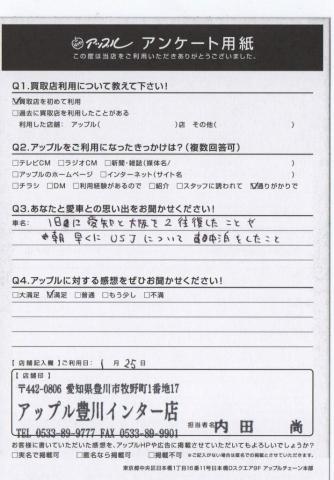 アップル アンケート用紙
この度は当店をご利用いただきありがとうございました。
Q1.買取店利用について教えて下さい！
☑買取店を初めて利用
□過去に買取店を利用したことがある
利用した店舗： アップル（ ）店 その他（ ）
Q2.アップルをご利用になったきっかけは？（複数回答可）
□テレビCM □ラジオCM □新聞・雑誌（媒体名/ ）
□アップルのホームページ □インターネット（サイト名 ）
□チラシ □DM □利用経験があるので □紹介 □スタッフに誘われて ☑通りがかりで
Q3.あなたと愛車との思い出をお聞かせください！
車名： 1日に愛知と大阪を2往復したことや
朝早くにUSJについて 車中泊をしたこと
Q4.アップルに対する感想をぜひお聞かせください！
□大満足 ☑満足 □普通 □もう少し □不満
【店舗記入欄】ご利用日： 1月25日
【店舗印】
〒442-0806 愛知県豊川市牧野町1番地17
アップル豊川インター店
TEL 0533-89-9777 FAX 0533-89-9901
担当者名 内田 尚
お客様に書いていただいた感想を、アップルHPや広告に掲載させていただいてもよろしいでしょうか？
□実名で掲載可 □匿名なら掲載可 □掲載不可 ※ご記入がない場合は匿名での掲載とさせていただきます。
東京都中央区日本橋1丁目16番11号日本橋Dスクエア9F アップルチェーン本部